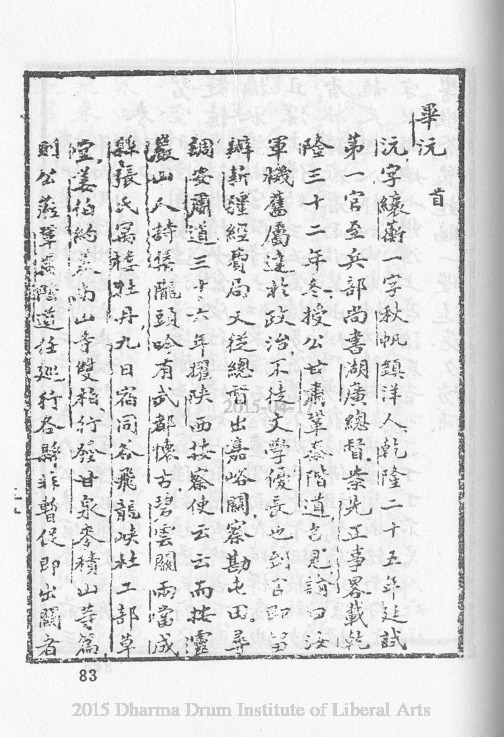 畢沅 首
沅字纕蘅一字秋帆鎮洋人乾隆二十五年廷試
第一官至兵部尚書湖廣總督案先正事畧載乾
隆三十二年冬授公甘肅鞏秦階道召見諭曰汝
軍機舊屬達於政治不徒文學優長也到官即留
辦新疆經費局又從總督出嘉峪關察勘屯田尋
調安肅道三十六年擢陝西按察使云云而按靈
巖山人詩集隴頭吟有武都懷古碧雲關雨當成
縣張氏寓樓牡丹九日宿同谷飛龍峽杜工部草
堂姜伯約 南山寺雙柏行發甘泉麥積山等篇
則公 鞏秦階道任巡行各縣非暫促即出關者
83
2015 Dharma Drum Institute of Liberal Arts